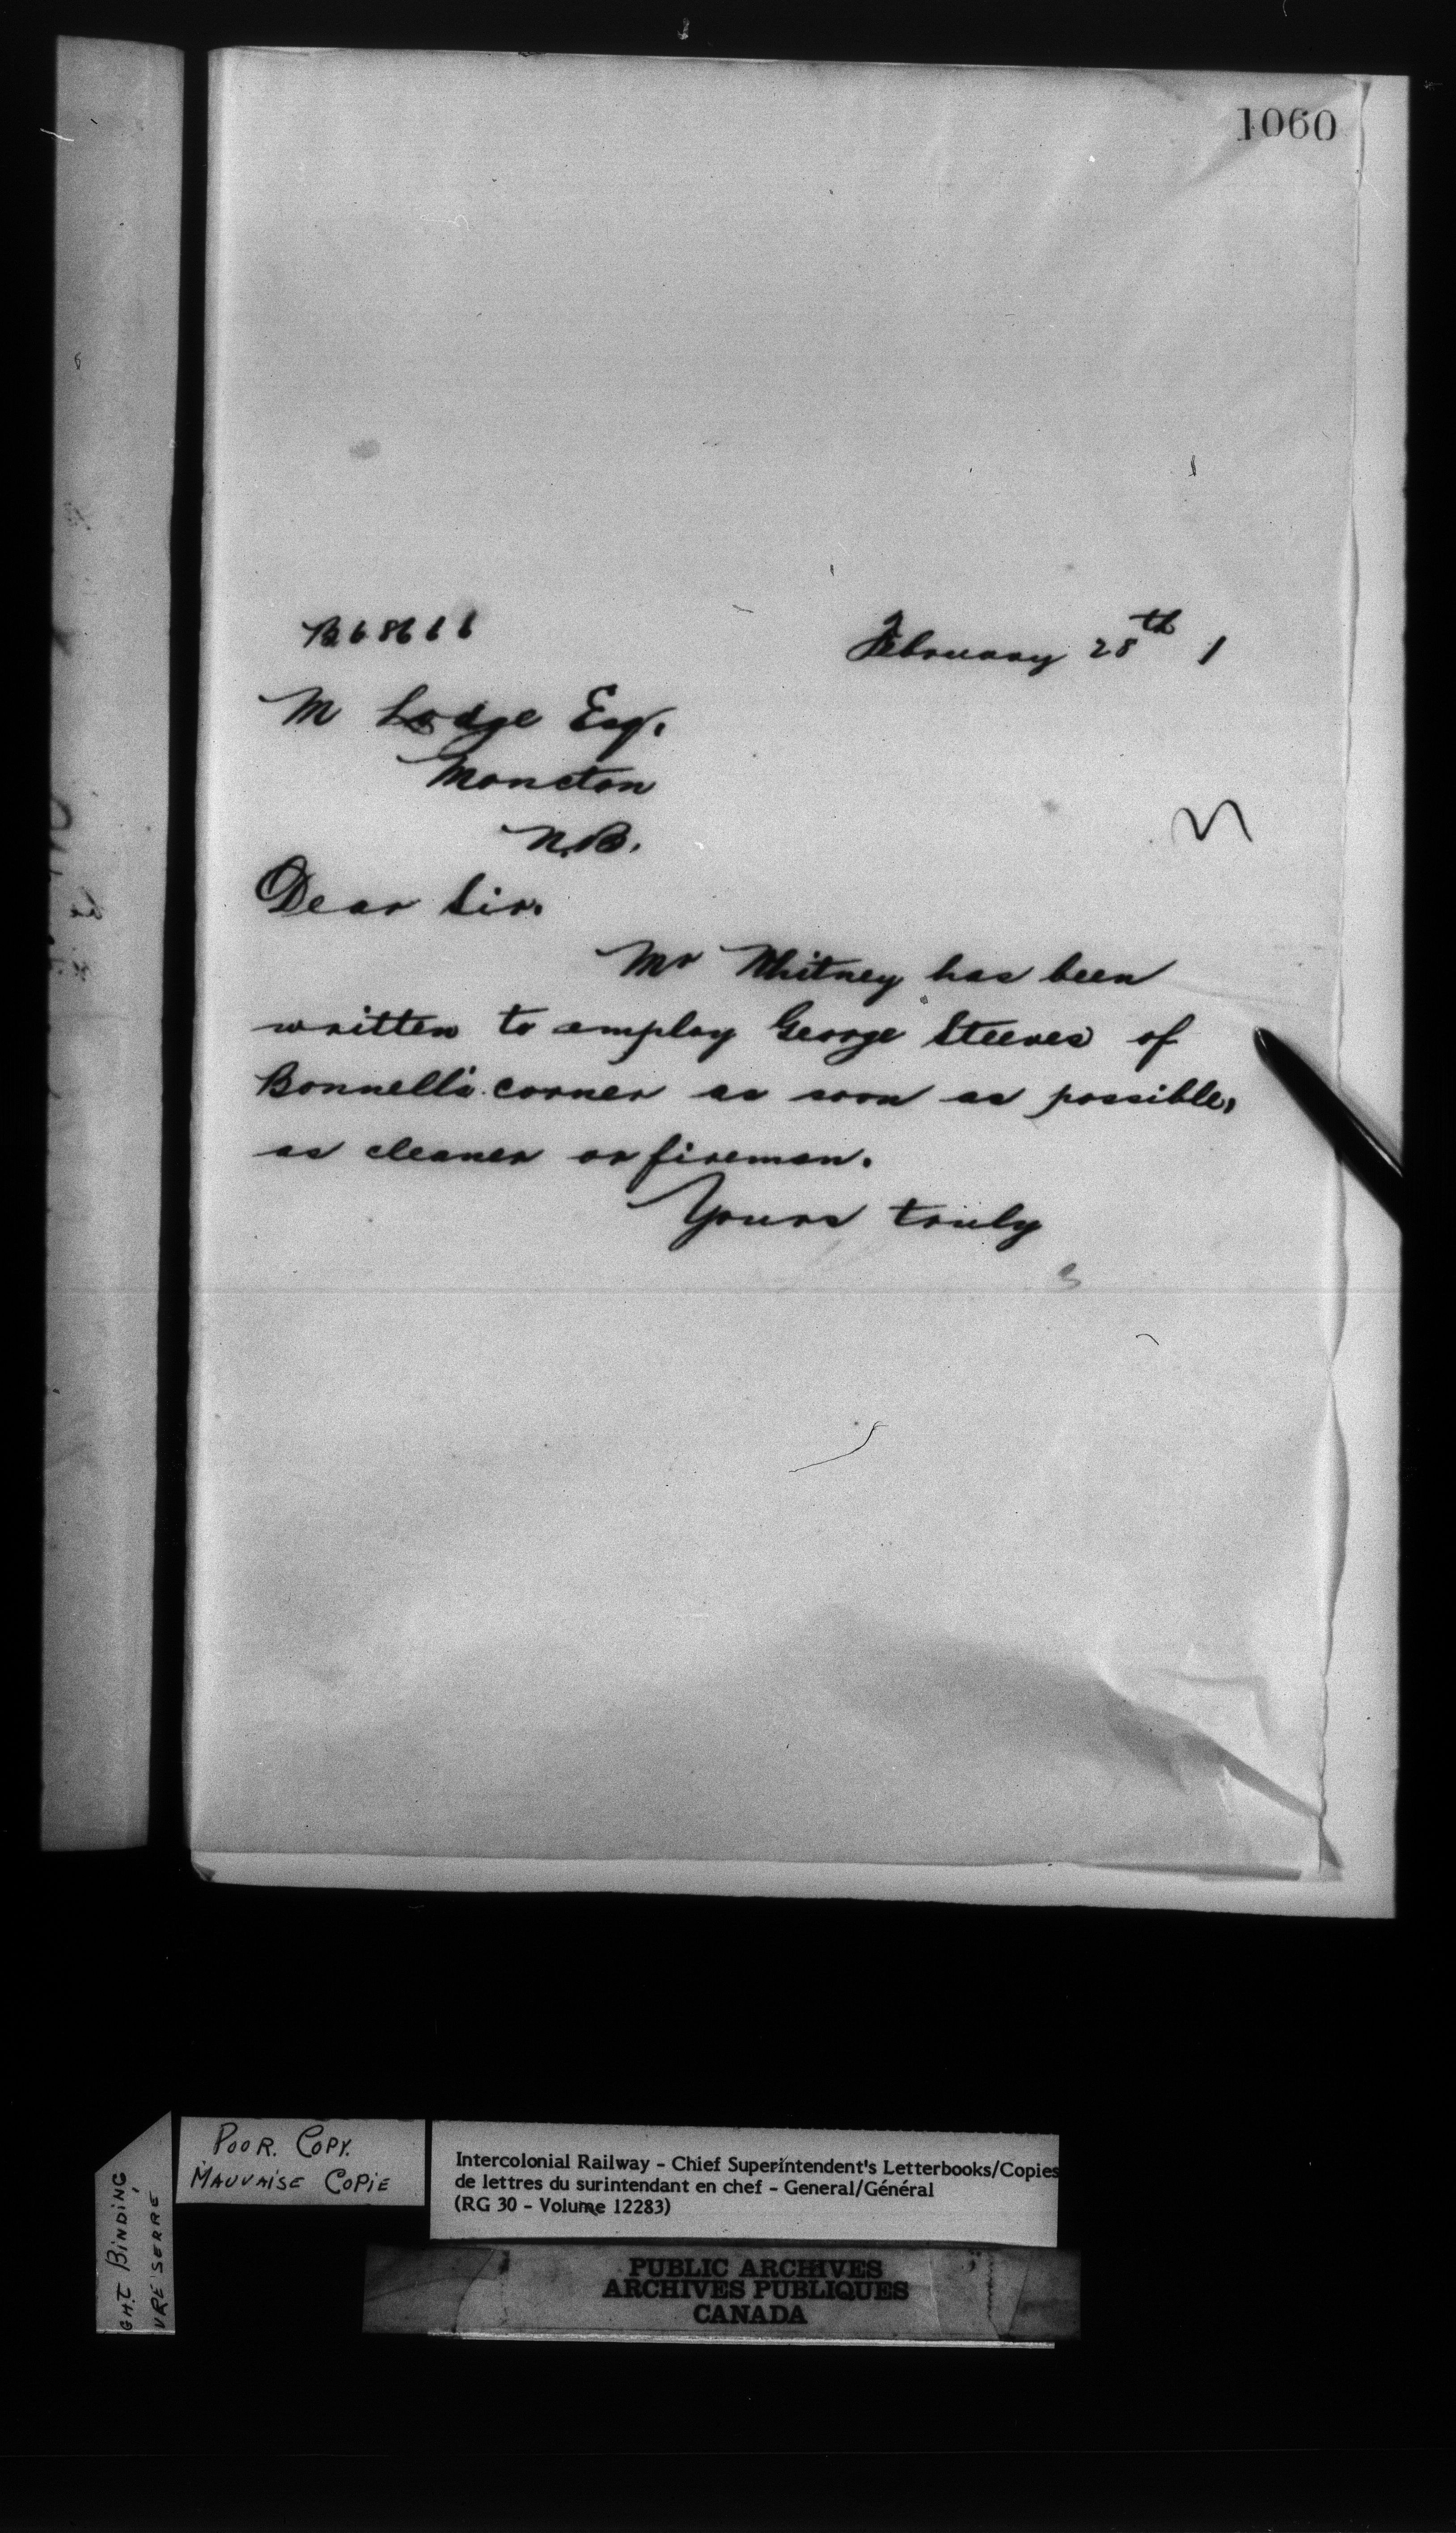 1060
B68666
February 28th 1
M Lodge Esq.
Moncton
N.B.
Dear Sir.
Mr Whitney has been
written to employ George Steeves of
Bonnell's corner as soon as possible,
as cleaner or fireman.
Yours truly
POOR. COPY.
MAUVAISE COPIE
GHT BINDING
VRE SERRE
Intercolonial Railway - Chief Superintendent's Letterbooks/Copies
de lettres du surintendant en chef - General/Général
(RG 30 - Volume 12283)
PUBLIC ARCHIVES
ARCHIVES PUBLIQUES
CANADA